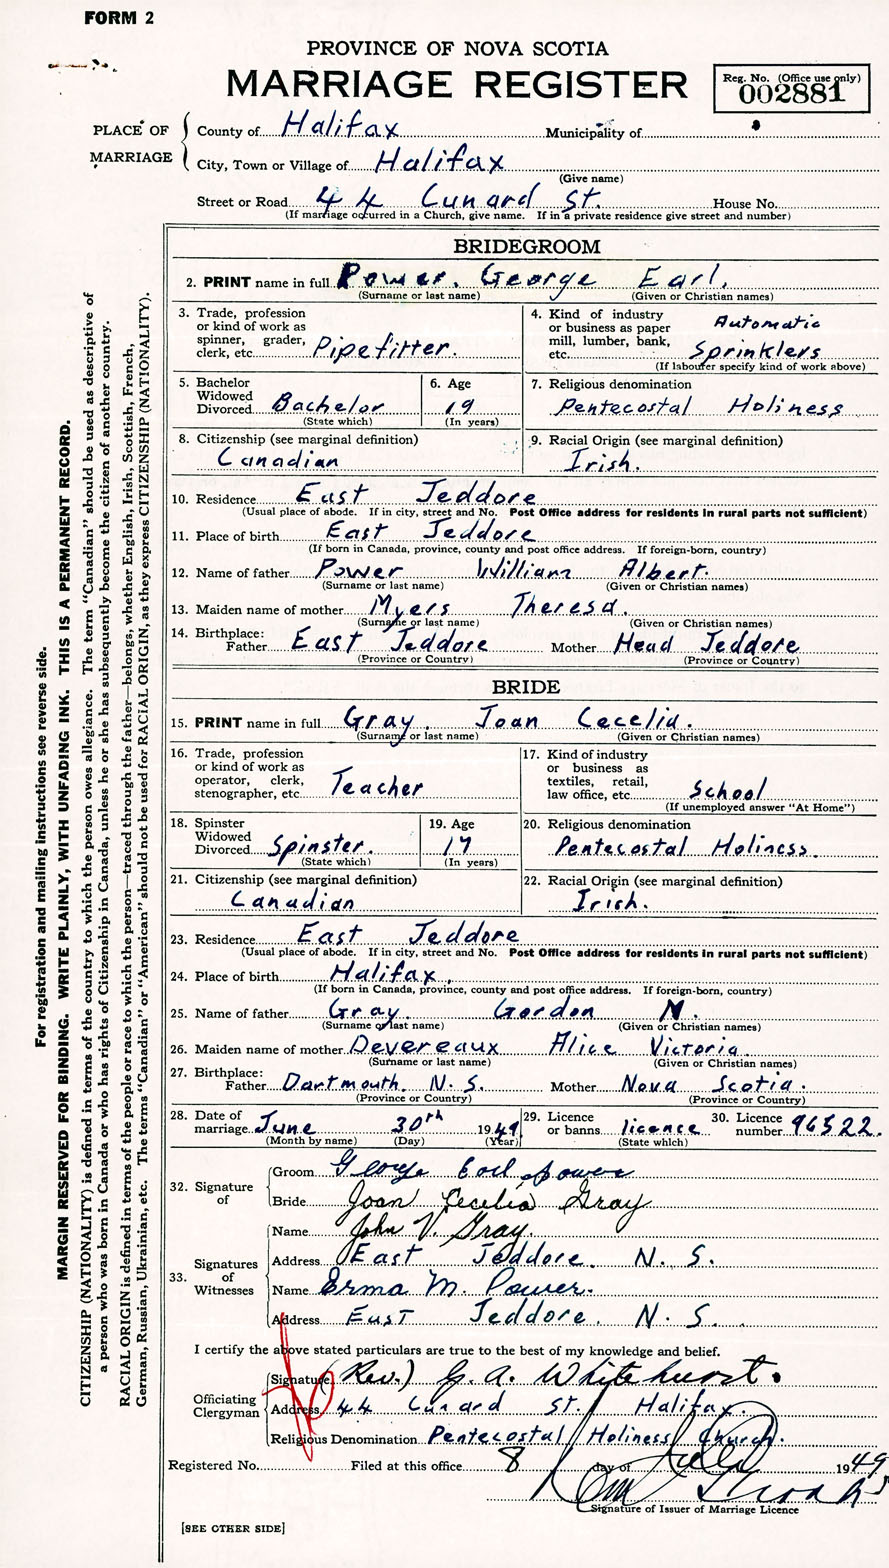 FORM 2
PROVINCE OF NOVA SCOTIA
MARRIAGE REGISTER
Reg. No. (Office use only)
002881
PLACE OF MARRIAGE
County of Halifax Municipality of
City, Town or Village of Halifax
(Give name)
Street or Road 44 Cunard St. House No.
(If marriage occurred in a Church, give name. If in a private residence give street and number)
BRIDEGROOM
2. PRINT name in full Power. George Earl.
(Surname or last name) (Given or Christian names)
3. Trade, profession or kind of work as spinner, grader, clerk, etc. Pipefitter.
4. Kind of industry or business as paper mill, lumber, bank, etc. Automatic Sprinklers
(If labourer specify kind of work above)
5. Bachelor Widowed Divorced Bachelor
(State which)
6. Age 19
(In years)
7. Religious denomination
Pentecostal Holiness
8. Citizenship (see marginal definition)
Canadian
9. Racial Origin (see marginal definition)
Irish.
10. Residence East Jeddore
(Usual place of abode. If in city, street and No. Post Office address for residents in rural parts not sufficient)
11. Place of birth East Jeddore
(If born in Canada, province, county and post office address. If foreign-born, country)
12. Name of father Power William Albert.
(Surname or last name) (Given or Christian names)
13. Maiden name of mother Myers Theresa.
(Surname or last name) (Given or Christian names)
14. Birthplace:
Father East Jeddore Mother Head Jeddore
(Province or Country) (Province or Country)
BRIDE
15. PRINT name in full Gray. Joan Cecelia.
(Surname or last name) (Given or Christian names)
16. Trade, profession or kind of work as operator, clerk, stenographer, etc. Teacher
17. Kind of industry or business as textiles, retail, law office, etc. School
(If unemployed answer "At Home")
18. Spinster Widowed Divorced Spinster.
(State which)
19. Age 17
(In years)
20. Religious denomination
Pentecostal Holiness.
21. Citizenship (see marginal definition)
Canadian
22. Racial Origin (see marginal definition)
Irish.
23. Residence East Jeddore
(Usual place of abode. If in city, street and No. Post Office address for residents in rural parts not sufficient)
24. Place of birth Halifax.
(If born in Canada, province, county and post office address. If foreign-born, country)
25. Name of father Gray. Gordon N.
(Surname or last name) (Given or Christian names)
26. Maiden name of mother Devereaux Alice Victoria.
(Surname or last name) (Given or Christian names)
27. Birthplace:
Father Dartmouth. N. S. Mother Nova Scotia.
(Province or Country) (Province or Country)
28. Date of marriage June 30th 1949
(Month by name) (Day) (Year)
29. Licence or banns licence
(State which)
30. Licence number 96522.
32. Signature of
Groom George Earl Power
Bride Joan Cecelia Gray
33. Signatures of Witnesses
Name John V. Gray.
Address East Jeddore. N. S.
Name Erma M. Power.
Address East Jeddore. N. S.
I certify the above stated particulars are true to the best of my knowledge and belief.
Officiating Clergyman
Signature (Rev.) G. A. Whitehurst.
Address 44 Cunard St. Halifax.
Religious Denomination Pentecostal Holiness Church.
Registered No. Filed at this office 8 day of July 1949
Signature of Issuer of Marriage Licence
[SEE OTHER SIDE]
For registration and mailing instructions see reverse side.
MARGIN RESERVED FOR BINDING. WRITE PLAINLY, WITH UNFADING INK. THIS IS A PERMANENT RECORD.
CITIZENSHIP (NATIONALITY) is defined in terms of the country to which the person owes allegiance. The term "Canadian" should be used as descriptive of
a person who was born in Canada or who has rights of Citizenship in Canada, unless he or she has subsequently become the citizen of another country.
RACIAL ORIGIN is defined in terms of the people or race to which the person—traced through the father—belongs, whether English, Irish, Scottish, French,
German, Russian, Ukrainian, etc. The terms "Canadian" or "American" should not be used for RACIAL ORIGIN, as they express CITIZENSHIP (NATIONALITY).